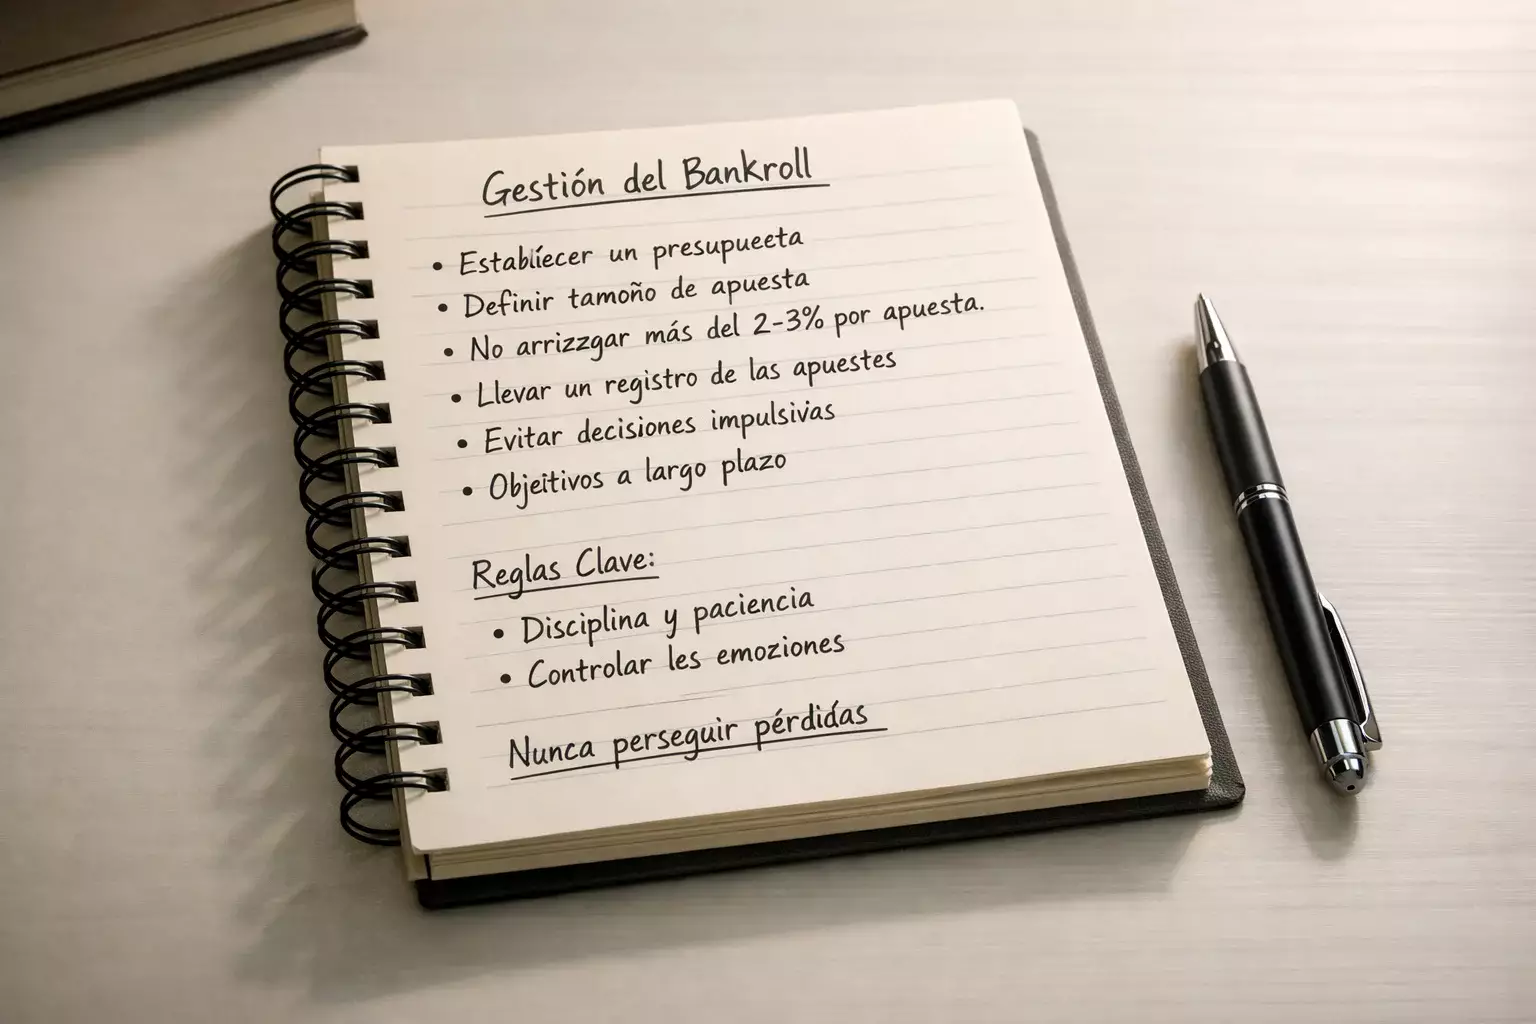 Gestión del Bankroll
• Establíecer un presupueeta
• Definir tamoño de apuesta
• No arrizzgar más del 2-3% por apuesta.
• Llevar un registro de las apuestes
• Evitar decisiones impulsivas
• Objeitivos a largo plazo
Reglas Clave:
• Disciplina y paciencia
• Controlar les emoziones
Nunca perseguir pérdidas